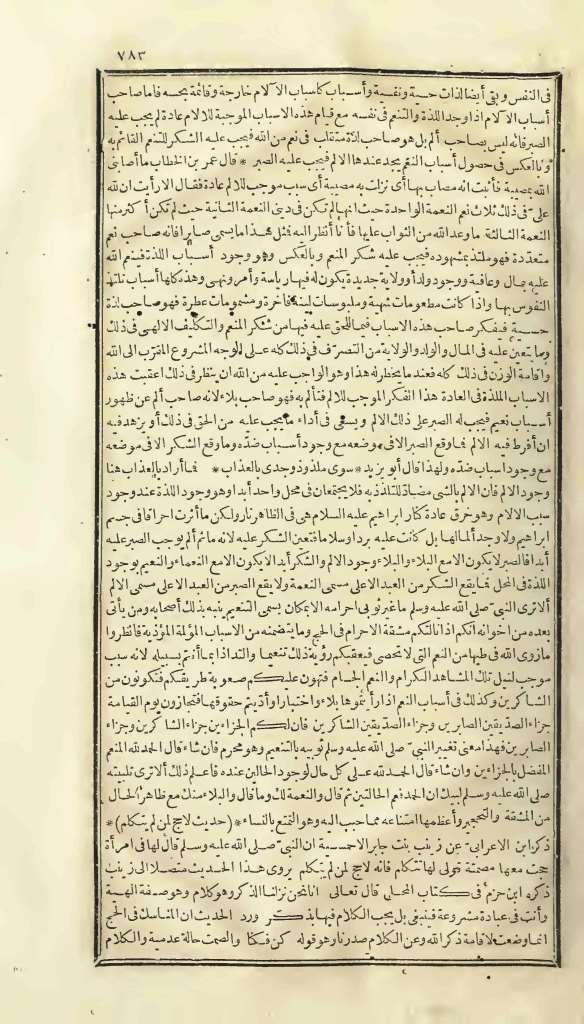 ٧٨٣
فى النفس وبقى أيضا لذات حسية ونفسية وأسباب كأسباب الآلام خارجة وقائمة بحسه فاما صاحب
أسباب الآلام اذا وجد اللذة والتنعم فى نفسه مع قيام هذه الاسباب الموجبة للآلام عادة لم يجب عليه
الصبر فانه ليس بصاحب ألم بل هو صاحب لذة متقلب فى نعم من الله فيجب عليه الشكر للتنعم القائم به
وبالعكس فى حصول أسباب النعم يجد عندها الالم فيجب عليه الصبر * قال عمر بن الخطاب ما أصابنى
الله بمصيبة فأثبت انه مصاب بها أى نزلت به مصيبة أى سبب موجب للالم عادة فقال الا رأيت ان لله
علىّ فى ذلك ثلاث نعم النعمة الواحدة حيث انها لم تكن فى دينى النعمة الثانية حيث لم تكن أكثر منها
النعمة الثالثة ما وعد الله من الثواب عليها فأنا أنظر اليه فمثل هذا ما يسمى صابرا فانه صاحب نعم
متعدّدة فهو ملتذ بمشهوده فيجب عليه شكر المنعم وبالعكس وهو وجود أسباب اللذة فينعم الله
عليه بمال وعافية ووجود ولد أو ولاية جديدة يكون له فيها رياسة وأمر ونهى وهذه كلها أسباب تلتذ
النفوس بها واذا كانت مطعومات شهية وملبوسات لينة فاخرة ومشمومات عطرة فهو صاحب لذة
حسية فيفكر صاحب هذه الاسباب فيما للحق عليه فيها من شكر المنعم والتكليف الالهى فى ذلك
وما يتعين عليه فى المال والولد والولاية من التصرّف فى ذلك كله على الوجه المشروع المقرّب الى الله
واقامة الوزن فى ذلك كله فعند ما يخطر له هذا وهو الواجب عليه من الله ان ينظر فى ذلك اعقبت هذه
الاسباب الملذة فى العادة هذا الفكر الموجب للالم فتألم به فهو صاحب بلاء لانه صاحب ألم عن ظهور
أسباب نعيم فيجب له الصبر على ذلك الالم ويسعى فى أداء ما يجب عليه من الحق فى ذلك أو يزهد فيه
ان أفرط فيه الالم فما وقع الصبر الا فى موضعه مع وجود أسباب ضدّه وما وقع الشكر الا فى موضعه
مع وجود اسباب ضدّه ولهذا قال أبو يزيد * سوى ملذوذ وجدى بالعذاب * فما أراد بالعذاب هنا
وجود الالم فان الالم بالشئ مضاد للتلذذ به فلا يجتمعان فى محل واحد أبدا وهو وجود اللذة عند وجود
سبب الالام وهو خرق عادة كنار ابراهيم عليه السلام هى فى الظاهر نار ولكن ما أثرت احراقا فى جسم
ابراهيم ولا وجد ألما لها بل كانت عليه بردا وسلاما فتعين الشكر عليه لانه ما ثم ألم يوجب الصبر عليه
أبدا فالصبر لا يكون الا مع البلاء والبلاء وجود الالم والشكر أبدا لا يكون الا مع النعماء والنعيم بوجود
اللذة فى المحل فما يقع الشكر من العبد الا على مسمى النعمة ولا يقع الصبر من العبد الا على مسمى الالم
ألا ترى النبىّ صلى الله عليه وسلم ما غير ثوبى احرامه الا بمكان يسمى التنعيم ينبه بذلك أصحابه ومن يأتى
بعده من اخوانه انكم اذا نالتكم مشقة الاحرام فى الحج وما يتضمنه من الاسباب المؤلمة المؤذية فانظروا
ما زوى الله فى طيها من النعم التى لا تحصى فيعقبكم رؤية ذلك تنعيما والتذاذا بما أنتم بسبيله لانه سبب
موجب لنيل تلك المشاهد الكرام والنعم الجسام فتهون عليكم صعوبة طريقكم فتكونون من
الشاكرين وكذلك فى أسباب النعم اذا رأيتموها بلاء واختبارا وأدّيتم حقوقها فتجازون يوم القيامة
جزاء الصدّيقين الصابرين وجزاء الصدّيقين الشاكرين فان لكم الجزاءين جزاء الشاكرين وجزاء
الصابرين فهذا معنى تغيير النبىّ صلى الله عليه وسلم ثوبيه بالتنعيم وهو محرم فان شاء قال الحمد لله المنعم
المفضل بالجزاءين وان شاء قال الحمد لله على كل حال لوجود الحالين عنده فاعلم ذلك ألا ترى تلبيته
صلى الله عليه وسلم لبيك ان الحمد فعم الحالتين ثم قال والنعمة لك وما قال والبلاء منك مع ظاهر الحال
من المشقة والتحجير وأعظمها امتناعه مما حبب اليه وهو التمتع بالنساء * (حديث لاحج لمن لم يتكلم) *
ذكر ابن الاعرابى عن زينب بنت جابر الاحمسية ان النبىّ صلى الله عليه وسلم قال لها فى امرأة
حجت معها مصمتة قولى لها تتكلم فانه لاحج لمن لم يتكلم يروى هذا الحديث متصلا الى زينب
ذكره ابن حزم فى كتاب المحلى قال تعالى انا نحن نزلنا الذكر وهو كلام وهو صفة الهية
وأنت فى عبادة مشروعة فينبغى بل يجب الكلام فيها بذكر ورد الحديث ان المناسك فى الحج
انما وضعت لاقامة ذكر الله وعن الكلام صدرنا وهو قوله كن فكنا والصمت حالة عدمية والكلام